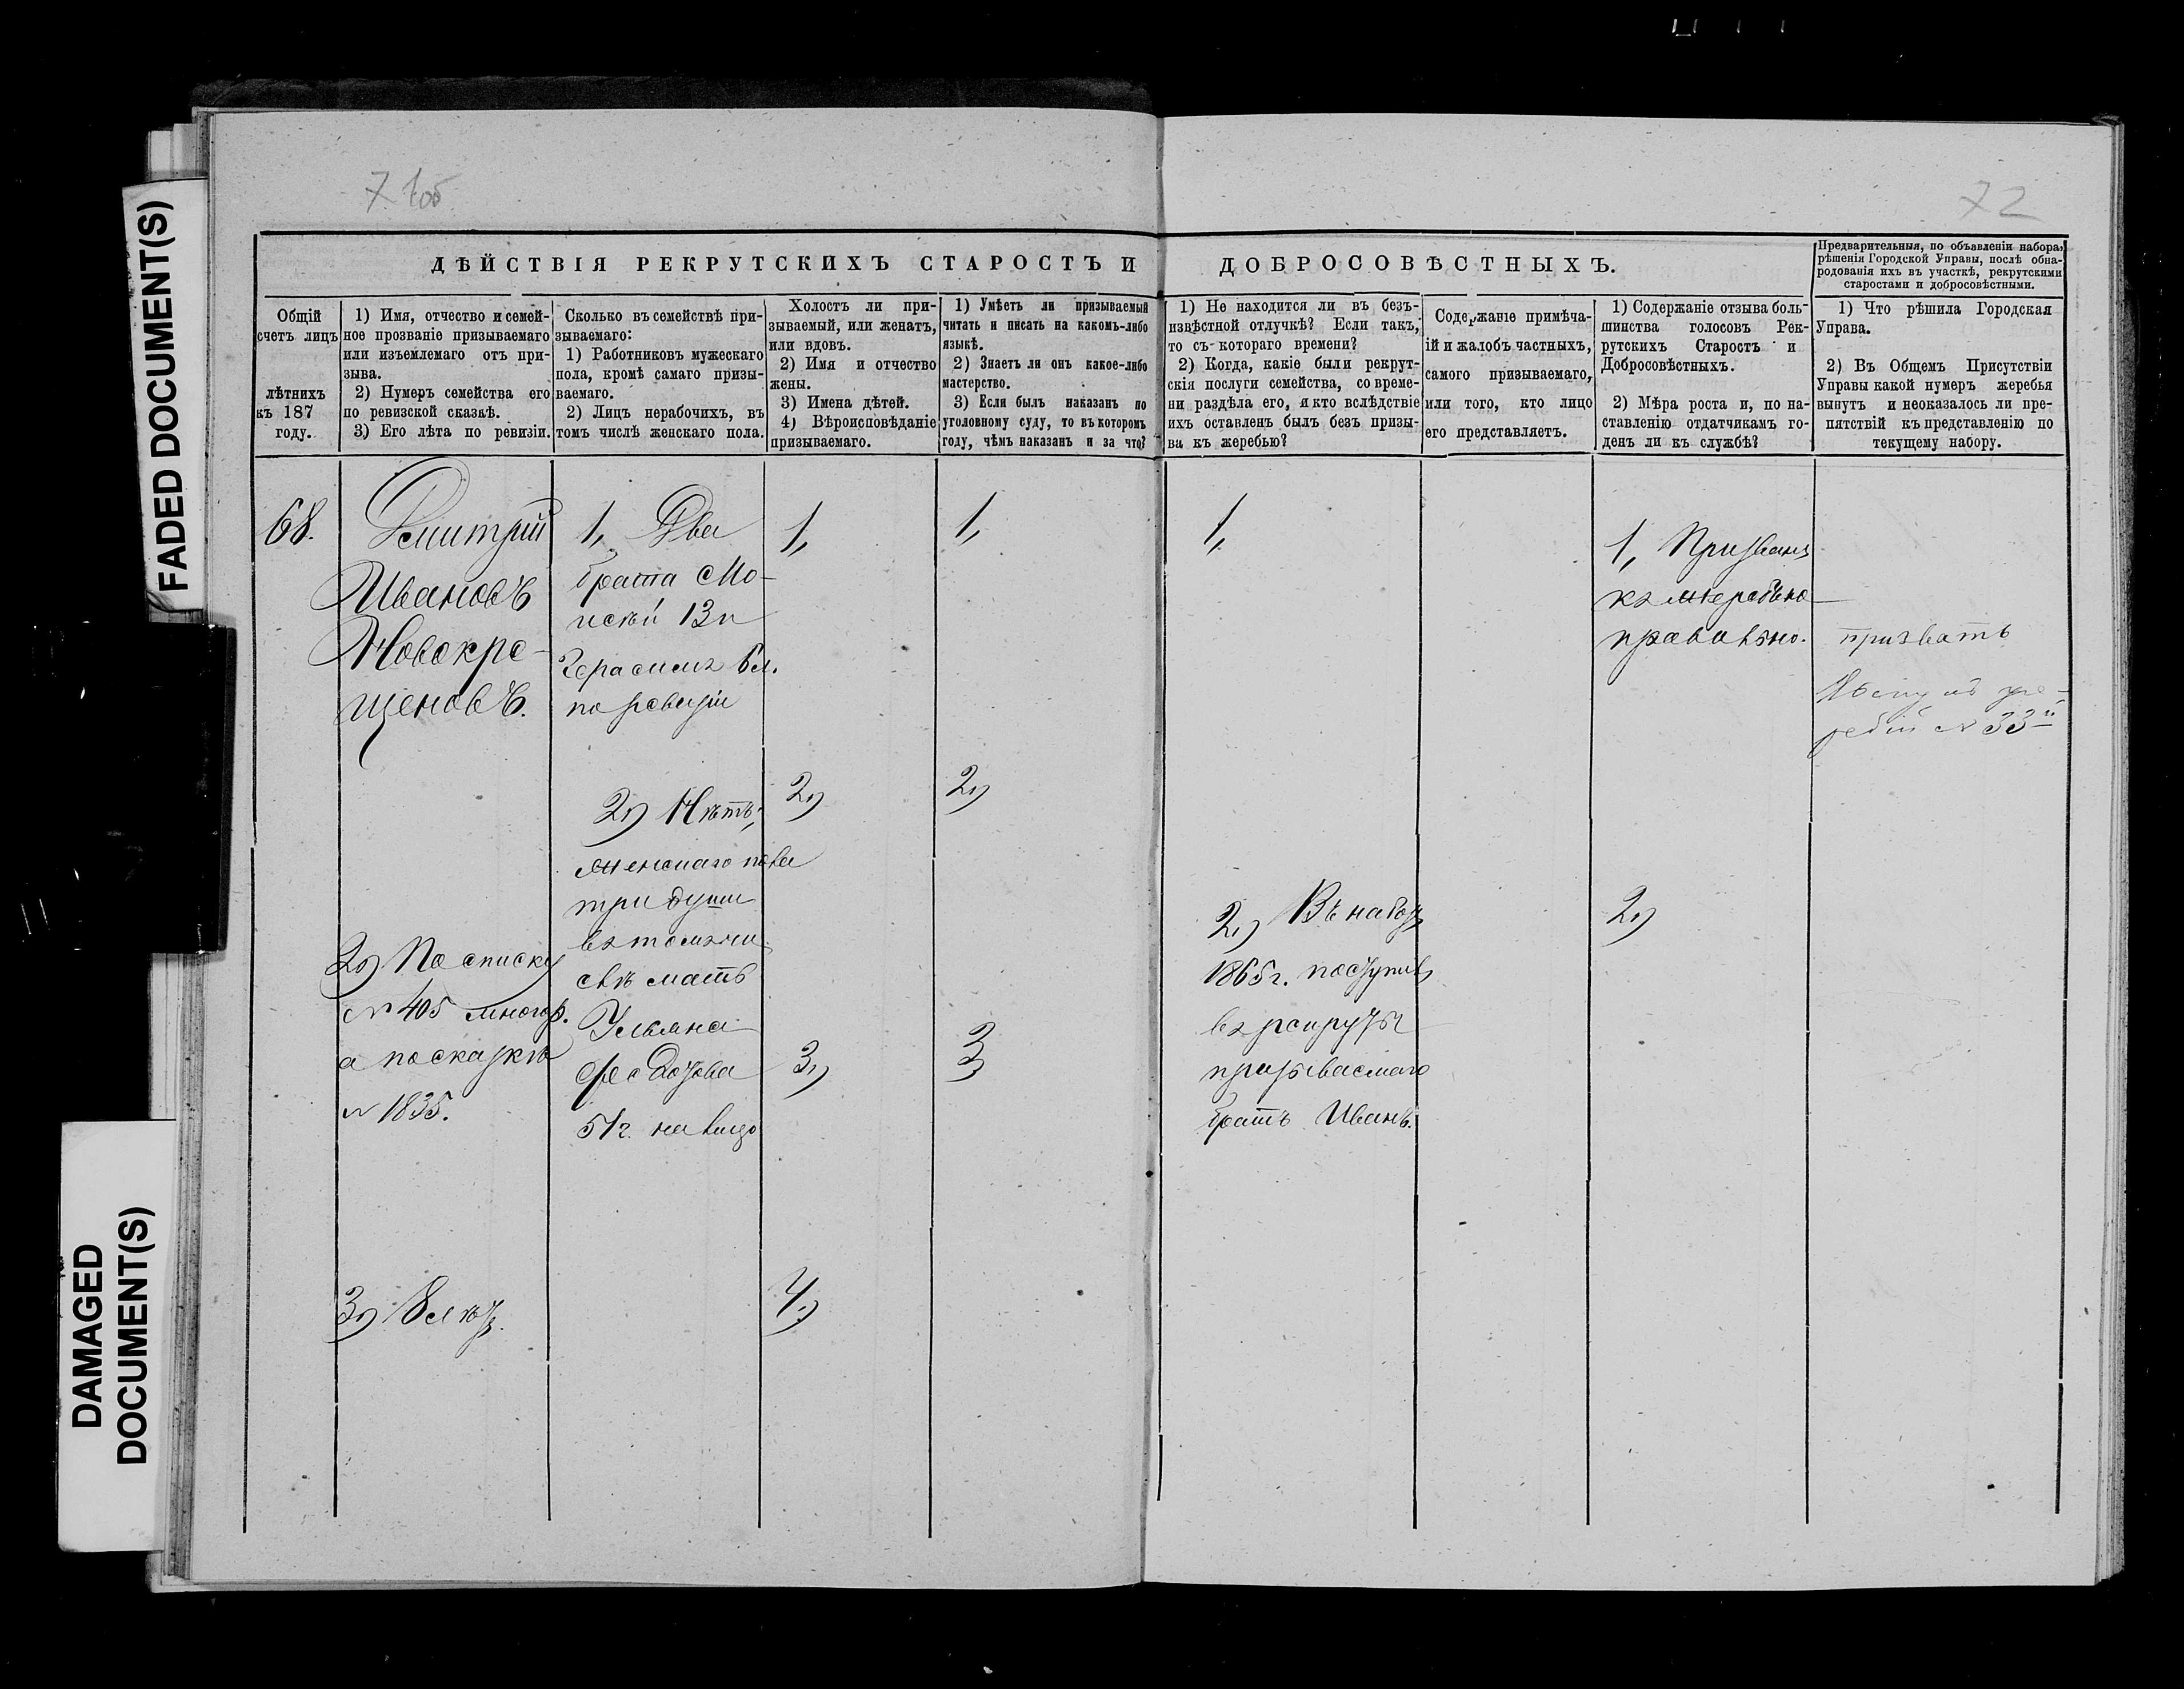 FADED DOCUMENT(S)
DAMAGED
DOCUMENT(S)
71об
72
ДѢЙСТВІЯ РЕКРУТСКИХЪ СТАРОСТЪ И ДОБРОСОВѢСТНЫХЪ.
Предварительныя, по объявленіи набора,
рѣшенія Городской Управы, послѣ обна-
родованія ихъ въ участкѣ, рекрутскими
старостами и добросовѣстными.
Общій
счетъ лицъ
лѣтнихъ
къ 187
году.
1) Имя, отчество и семей-
ное прозваніе призываемаго
или изъемлемаго отъ при-
зыва.
2) Нумеръ семейства его
по ревизской сказкѣ.
3) Его лѣта по ревизіи.
Сколько въ семействѣ при-
зываемаго:
1) Работниковъ мужескаго
пола, кромѣ самаго призы-
ваемаго.
2) Лицъ нерабочихъ, въ
томъ числѣ женскаго пола.
Холостъ ли при-
зываемый, или женатъ,
или вдовъ.
2) Имя и отчество
жены.
3) Имена дѣтей.
4) Вѣроисповѣданіе
призываемаго.
1) Умѣетъ ли призываемый
читать и писать на какомъ-либо
языкѣ.
2) Знаетъ ли онъ какое-либо
мастерство.
3) Если былъ наказанъ по
уголовному суду, то въ которомъ
году, чѣмъ наказанъ и за что?
1) Не находится ли въ безъ-
извѣстной отлучкѣ? Если такъ,
то съ котораго времени?
2) Когда, какіе были рекрут-
скія послуги семейства, со време-
ни раздѣла его, и кто вслѣдствіе
ихъ оставленъ былъ безъ призы-
ва къ жеребью?
Содержаніе примѣча-
ій и жалобъ частныхъ,
самого призываемаго,
или того, кто лицо
его представляетъ.
1) Содержаніе отзыва боль-
шинства голосовъ Рек-
рутскихъ Старостъ и
Добросовѣстныхъ.
2) Мѣра роста и, по на-
ставленію отдатчикамъ го-
денъ ли къ службѣ?
1) Что рѣшила Городская
Управа.
2) Въ Общемъ Присутствіи
Управы какой нумеръ жеребья
вынутъ и неоказалось ли пре-
пятствій къ представленію по
текущему набору.
68.
Дмитрій
Ивановъ
Новокре-
щеновъ.
2) По списку
№ 405 многор.
а по сказкѣ
№ 1835.
3) 8 лѣтъ.
1, Два
брата Мо-
исѣй 13 л
Герасимъ 6 л.
по ревизіи
2) Нѣтъ,
женскаго пола
три души
въ томъ чи-
слѣ мать
Ульяна
Федотова
51 г. на лицо
1,
2)
3)
4)
1,
2)
3
1,
2) Въ наборъ
1865 г. поступилъ
въ рекруты
призываемаго
братъ Иванъ.
1, Призванъ
къ жеребью
правильно.
2)
призвать
Вынулъ же-
ребій № 33й